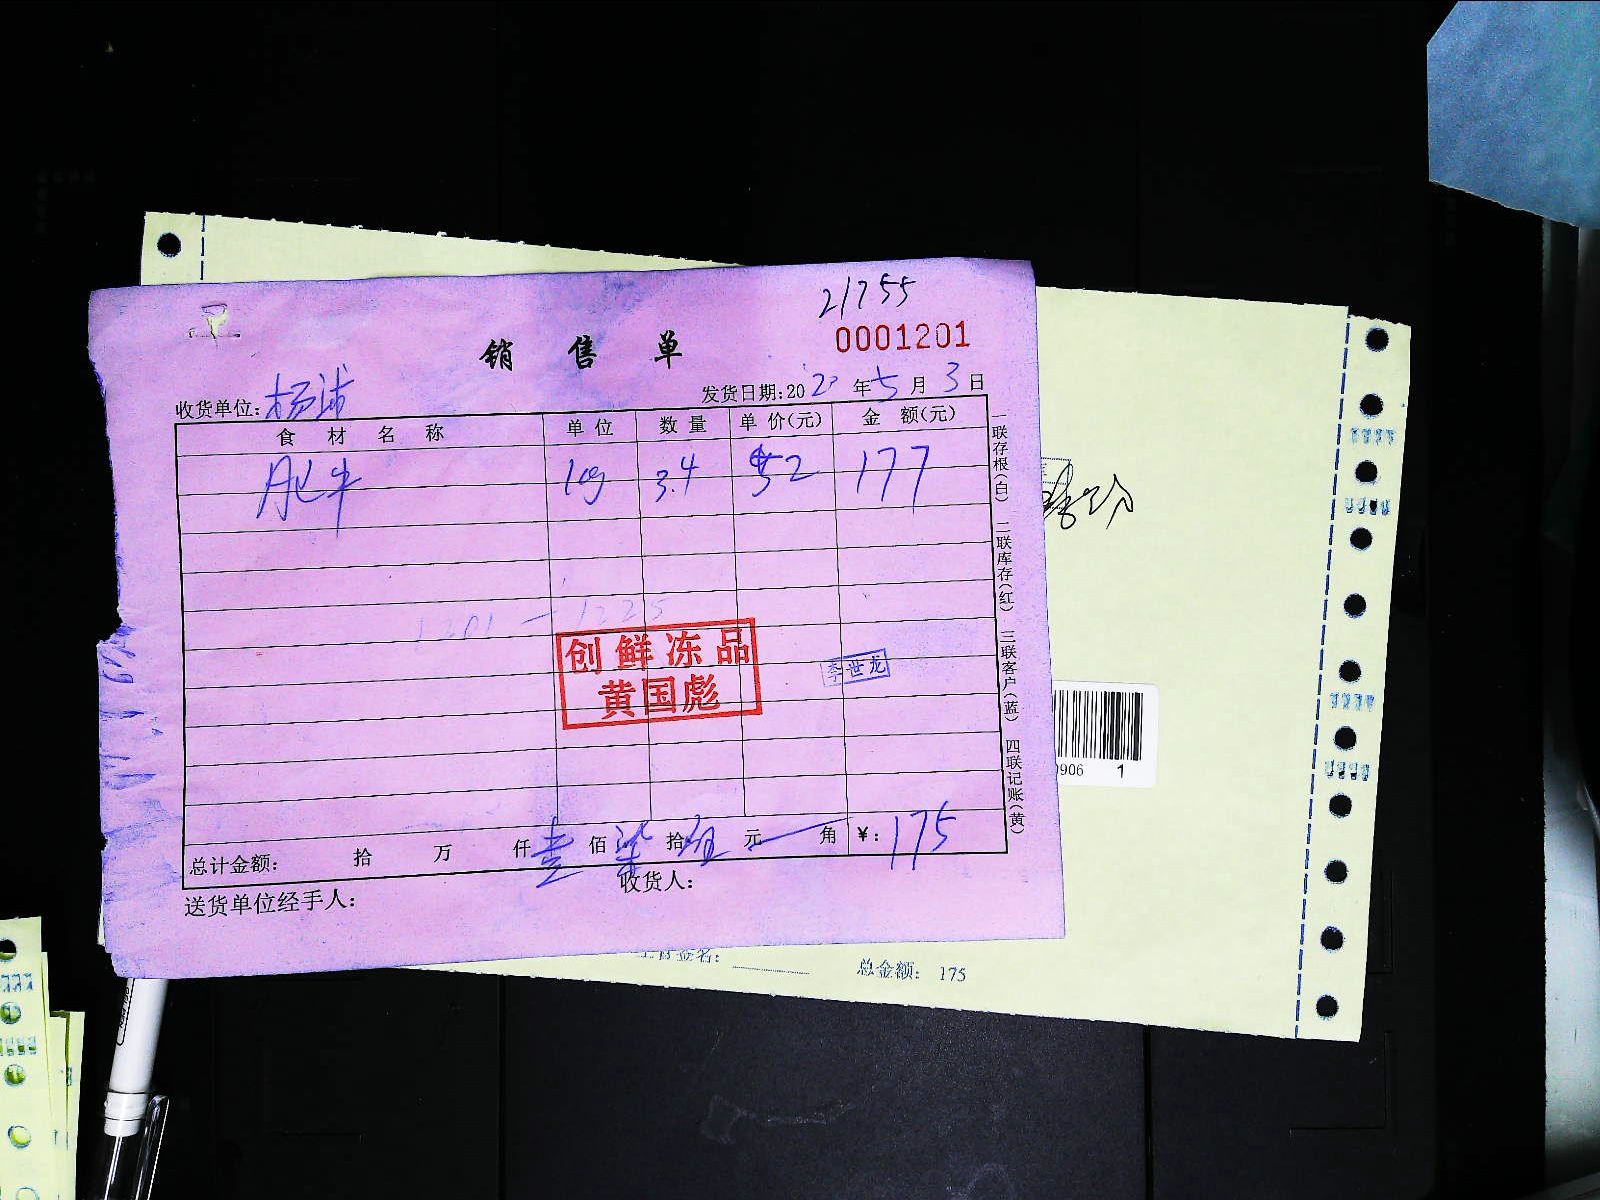 21755
0001201
销 售 单
收货单位: 杨浦
发货日期: 2020 年 5 月 3 日
食 材 名 称 单 位 数 量 单 价(元) 金 额(元)
肥牛 kg 3.4 52 177
1201 — 1225
创鲜冻品
黄国彪
李世龙
总计金额: 拾 万 仟 壹 佰 柒 拾 伍 元 角 ¥: 175
送货单位经手人: 收货人:
一联存根(白) 二联库存(红) 三联客户(蓝) 四联记账(黄)
0906 1
签名:
总金额: 175